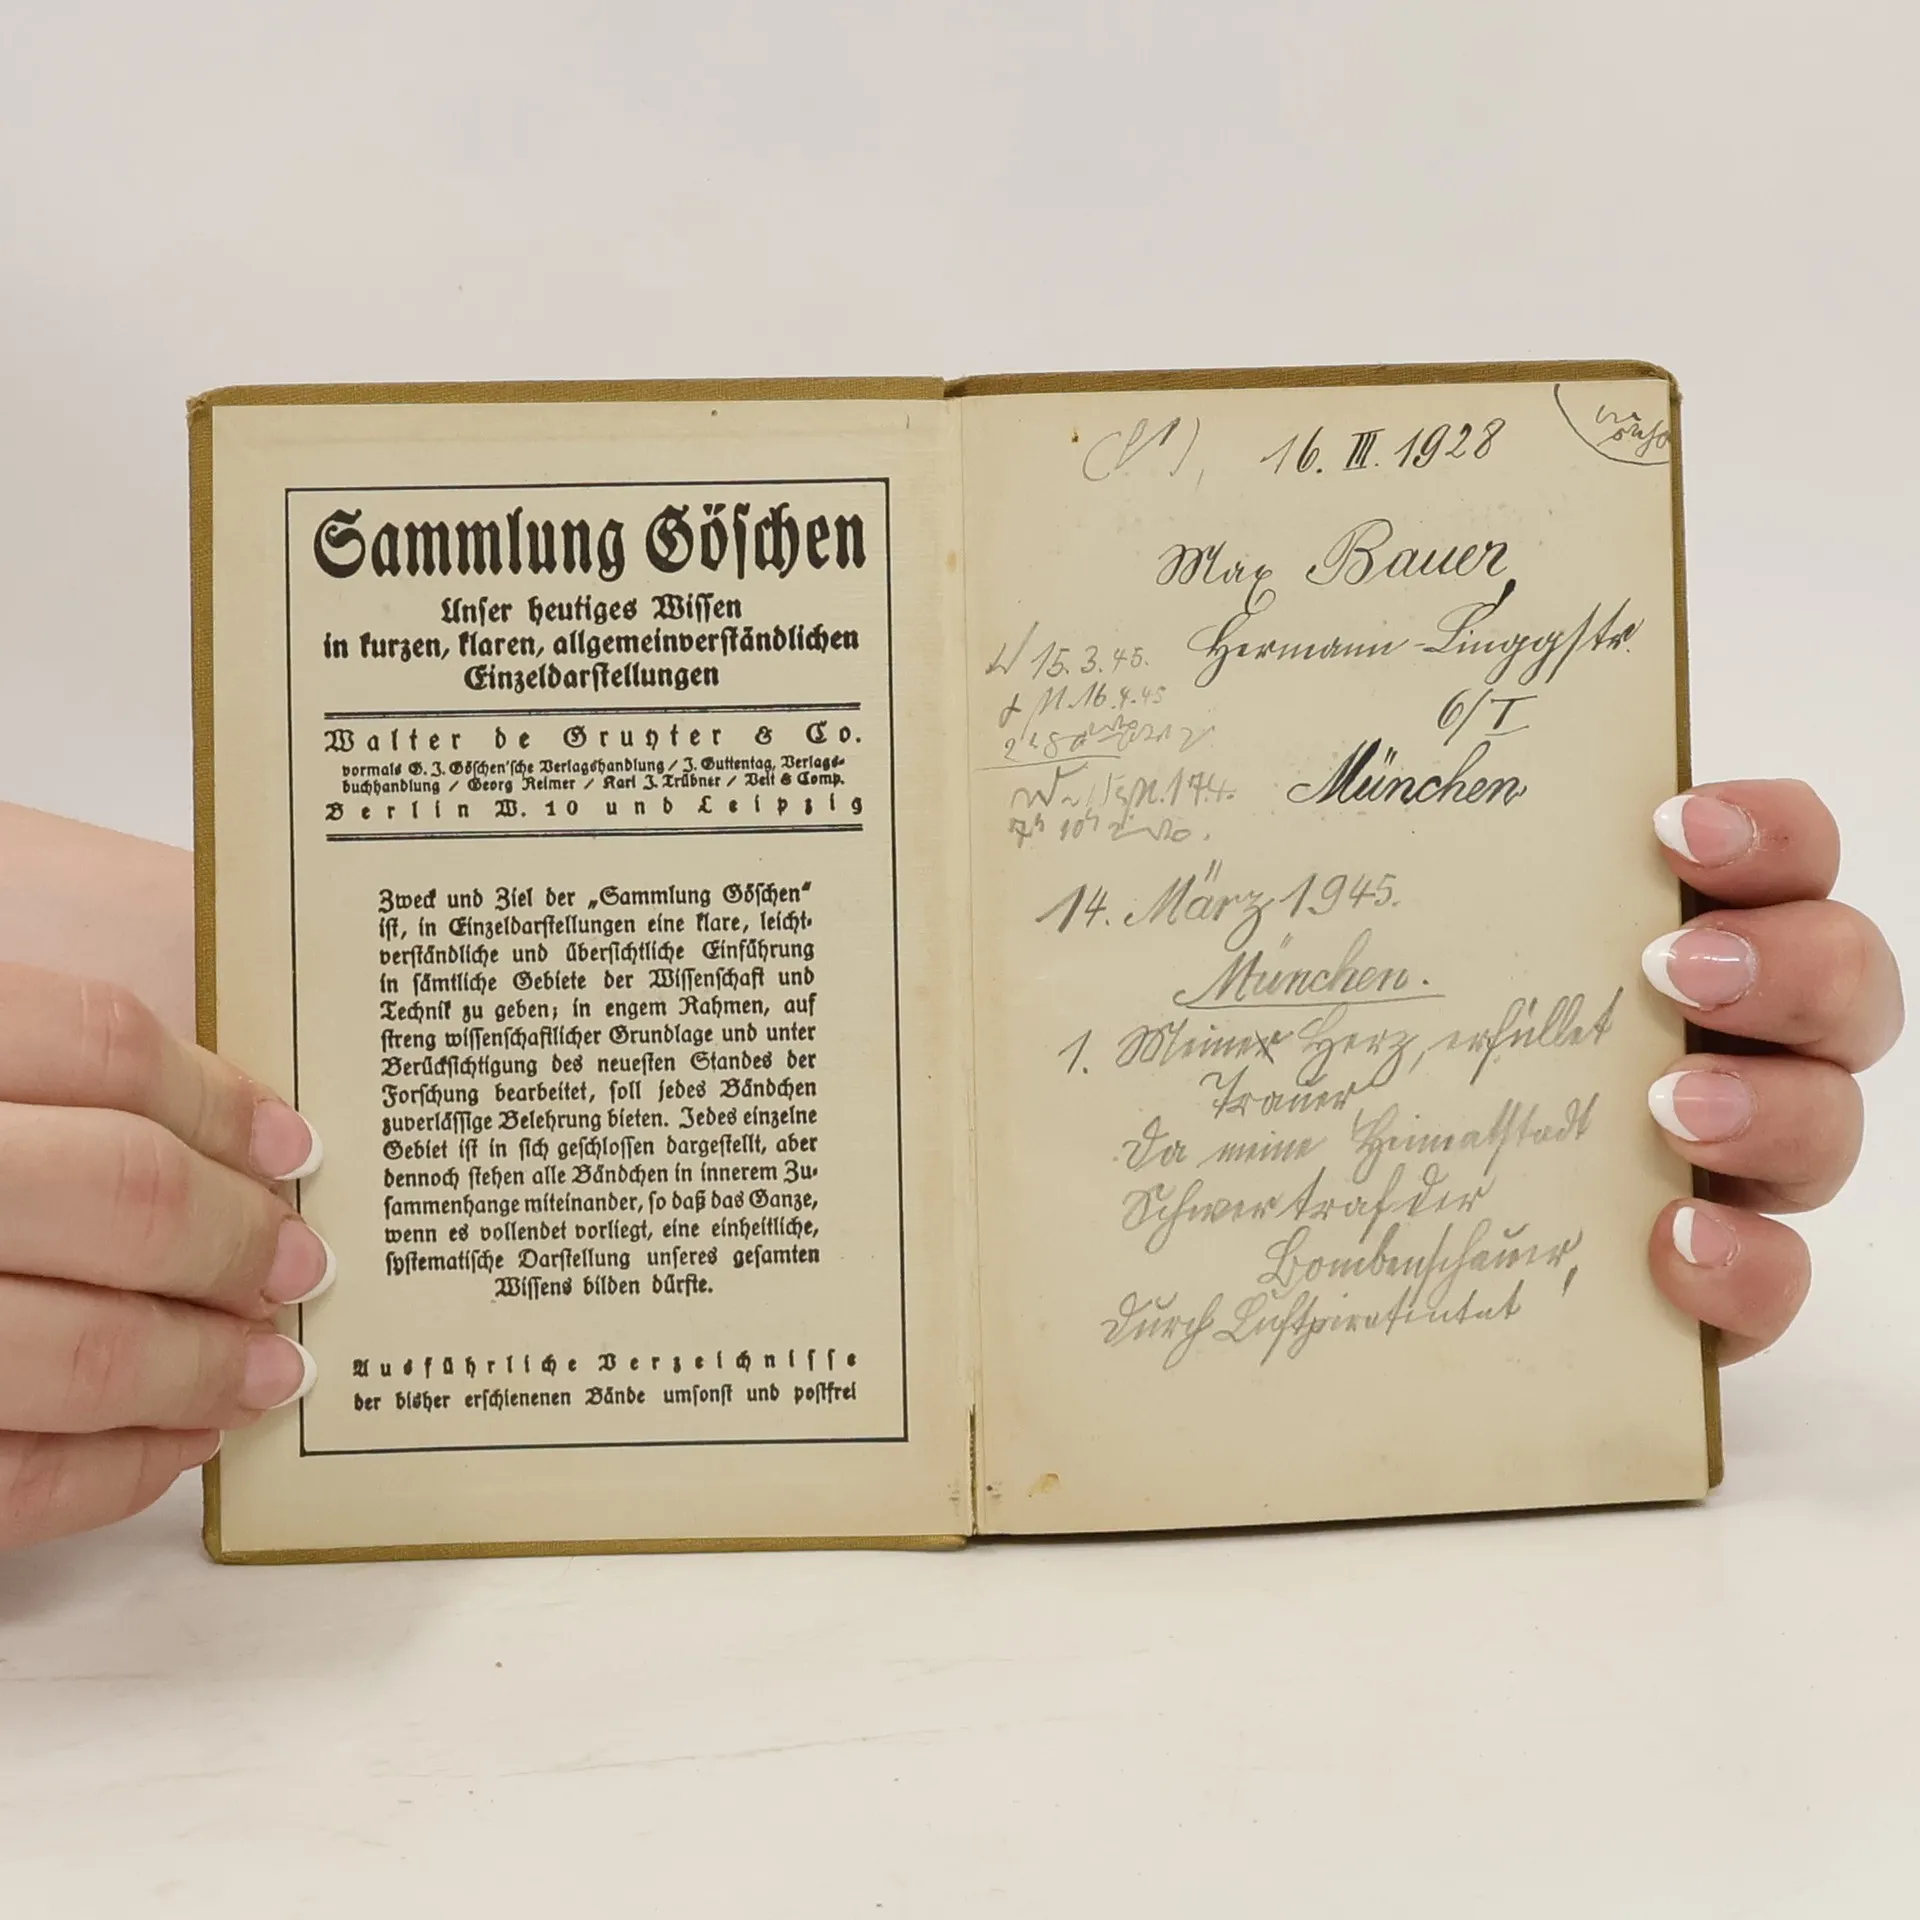 Sammlung Göschen
Unser heutiges Wissen
in kurzen, klaren, allgemeinverständlichen
Einzeldarstellungen
Walter de Gruyter & Co.
vormals G. J. Göschen'sche Verlagshandlung / J. Guttentag, Verlags-
buchhandlung / Georg Reimer / Karl J. Trübner / Veit & Comp.
Berlin W. 10 und Leipzig
Zweck und Ziel der „Sammlung Göschen“
ist, in Einzeldarstellungen eine klare, leicht-
verständliche und übersichtliche Einführung
in sämtliche Gebiete der Wissenschaft und
Technik zu geben; in engem Rahmen, auf
streng wissenschaftlicher Grundlage und unter
Berücksichtigung des neuesten Standes der
Forschung bearbeitet, soll jedes Bändchen
zuverlässige Belehrung bieten. Jedes einzelne
Gebiet ist in sich geschlossen dargestellt, aber
dennoch stehen alle Bändchen in innerem Zu-
sammenhange miteinander, so daß das Ganze,
wenn es vollendet vorliegt, eine einheitliche,
systematische Darstellung unseres gesamten
Wissens bilden dürfte.
Ausführliche Verzeichnisse
der bisher erschienenen Bände umsonst und postfrei
16. III. 1928
Max Bauer,
Hermann-Linggstr.
6/I
München
15.3.45.
16.4.45
14. März 1945.
München.
1. Meine Herz, erfüllet
Trauer
Da meine Heimatstadt
Schwer traf der
Bombenschauer,
durch Luftpiratentat